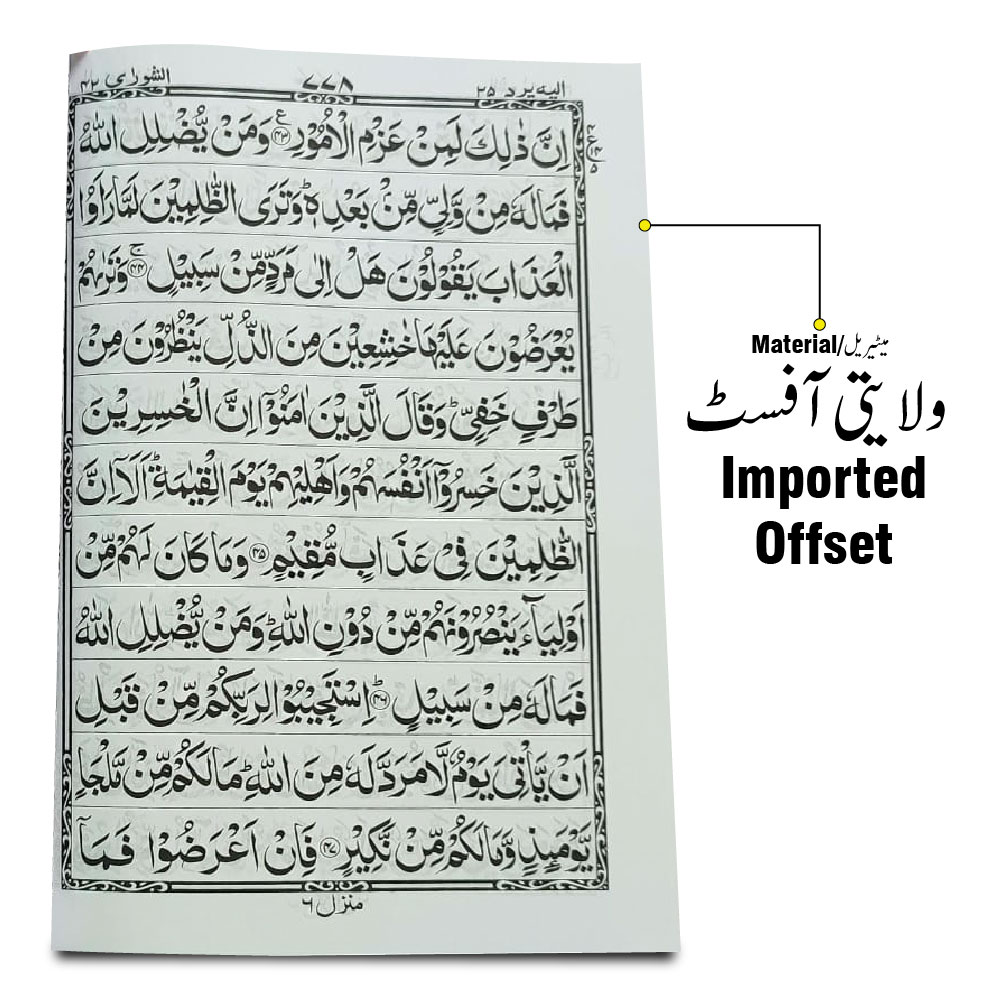 الیه یرد ۲۵
۷۷۸
الشورٰی ۴۲
اِنَّ ذٰلِكَ لَمِنْ عَزْمِ الْاُمُوْرِ ﴿۴۳﴾ وَمَنْ یُّضْلِلِ اللّٰهُ
فَمَا لَهٗ مِنْ وَّلِیٍّ مِّنْۢ بَعْدِهٖ ؕ وَتَرَی الظّٰلِمِیْنَ لَمَّا رَاَوُا
الْعَذَابَ یَقُوْلُوْنَ هَلْ اِلٰی مَرَدٍّ مِّنْ سَبِیْلٍ ۚ﴿۴۴﴾ وَتَرٰىهُمْ
یُعْرَضُوْنَ عَلَیْهَا خٰشِعِیْنَ مِنَ الذُّلِّ یَنْظُرُوْنَ مِنْ
طَرْفٍ خَفِیٍّ ؕ وَقَالَ الَّذِیْنَ اٰمَنُوْۤا اِنَّ الْخٰسِرِیْنَ
الَّذِیْنَ خَسِرُوْۤا اَنْفُسَهُمْ وَاَهْلِیْهِمْ یَوْمَ الْقِیٰمَةِ ؕ اَلَاۤ اِنَّ
الظّٰلِمِیْنَ فِیْ عَذَابٍ مُّقِیْمٍ ﴿۴۵﴾ وَمَا كَانَ لَهُمْ مِّنْ
اَوْلِیَآءَ یَنْصُرُوْنَهُمْ مِّنْ دُوْنِ اللّٰهِ ؕ وَمَنْ یُّضْلِلِ اللّٰهُ
فَمَا لَهٗ مِنْ سَبِیْلٍ ؕ﴿۴۶﴾ اِسْتَجِیْبُوْا لِرَبِّكُمْ مِّنْ قَبْلِ
اَنْ یَّاْتِیَ یَوْمٌ لَّا مَرَدَّ لَهٗ مِنَ اللّٰهِ ؕ مَا لَكُمْ مِّنْ مَّلْجَاٍ
یَّوْمَىِٕذٍ وَّمَا لَكُمْ مِّنْ نَّكِیْرٍ ﴿۴۷﴾ فَاِنْ اَعْرَضُوْا فَمَاۤ
منزل ۶
Material/میٹیریل
ولایتی آفسٹ
Imported
Offset